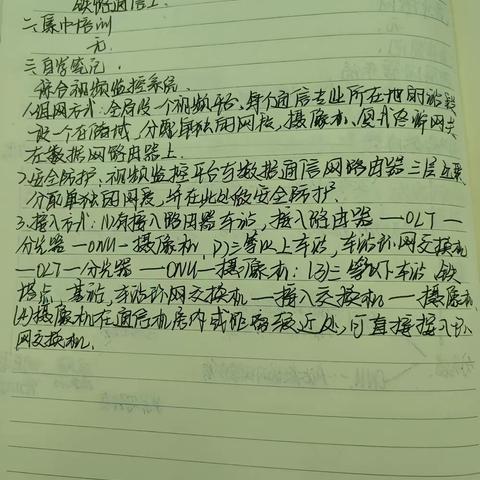 铁路通信工
二、集中培训
无
三、自学笔记.
综合视频监控系统.
1.组网方式:全局设一个视频平台、每个通信专业所在地的站段
设一个存储域,分配单独的网段,摄像机、
在数据网路由器上.
2.安全防护:视频监控平台与数据通信网路由器三层
分配单独的网段,并在此处做安全防护.
3.接入方式:(1)有接入路由器车站,接入路由器—OLT—
分光器—ONU—摄像机,(2)三等以上车站,车站环网交换机
—OLT—分光器—ONU—摄像机:(3)三等以下车站、铁
塔点、基站,车站环网交换机—接入交换机—摄像机
(4)摄像机在通信机房内或距离较近处,可直接接入环
网交换机.